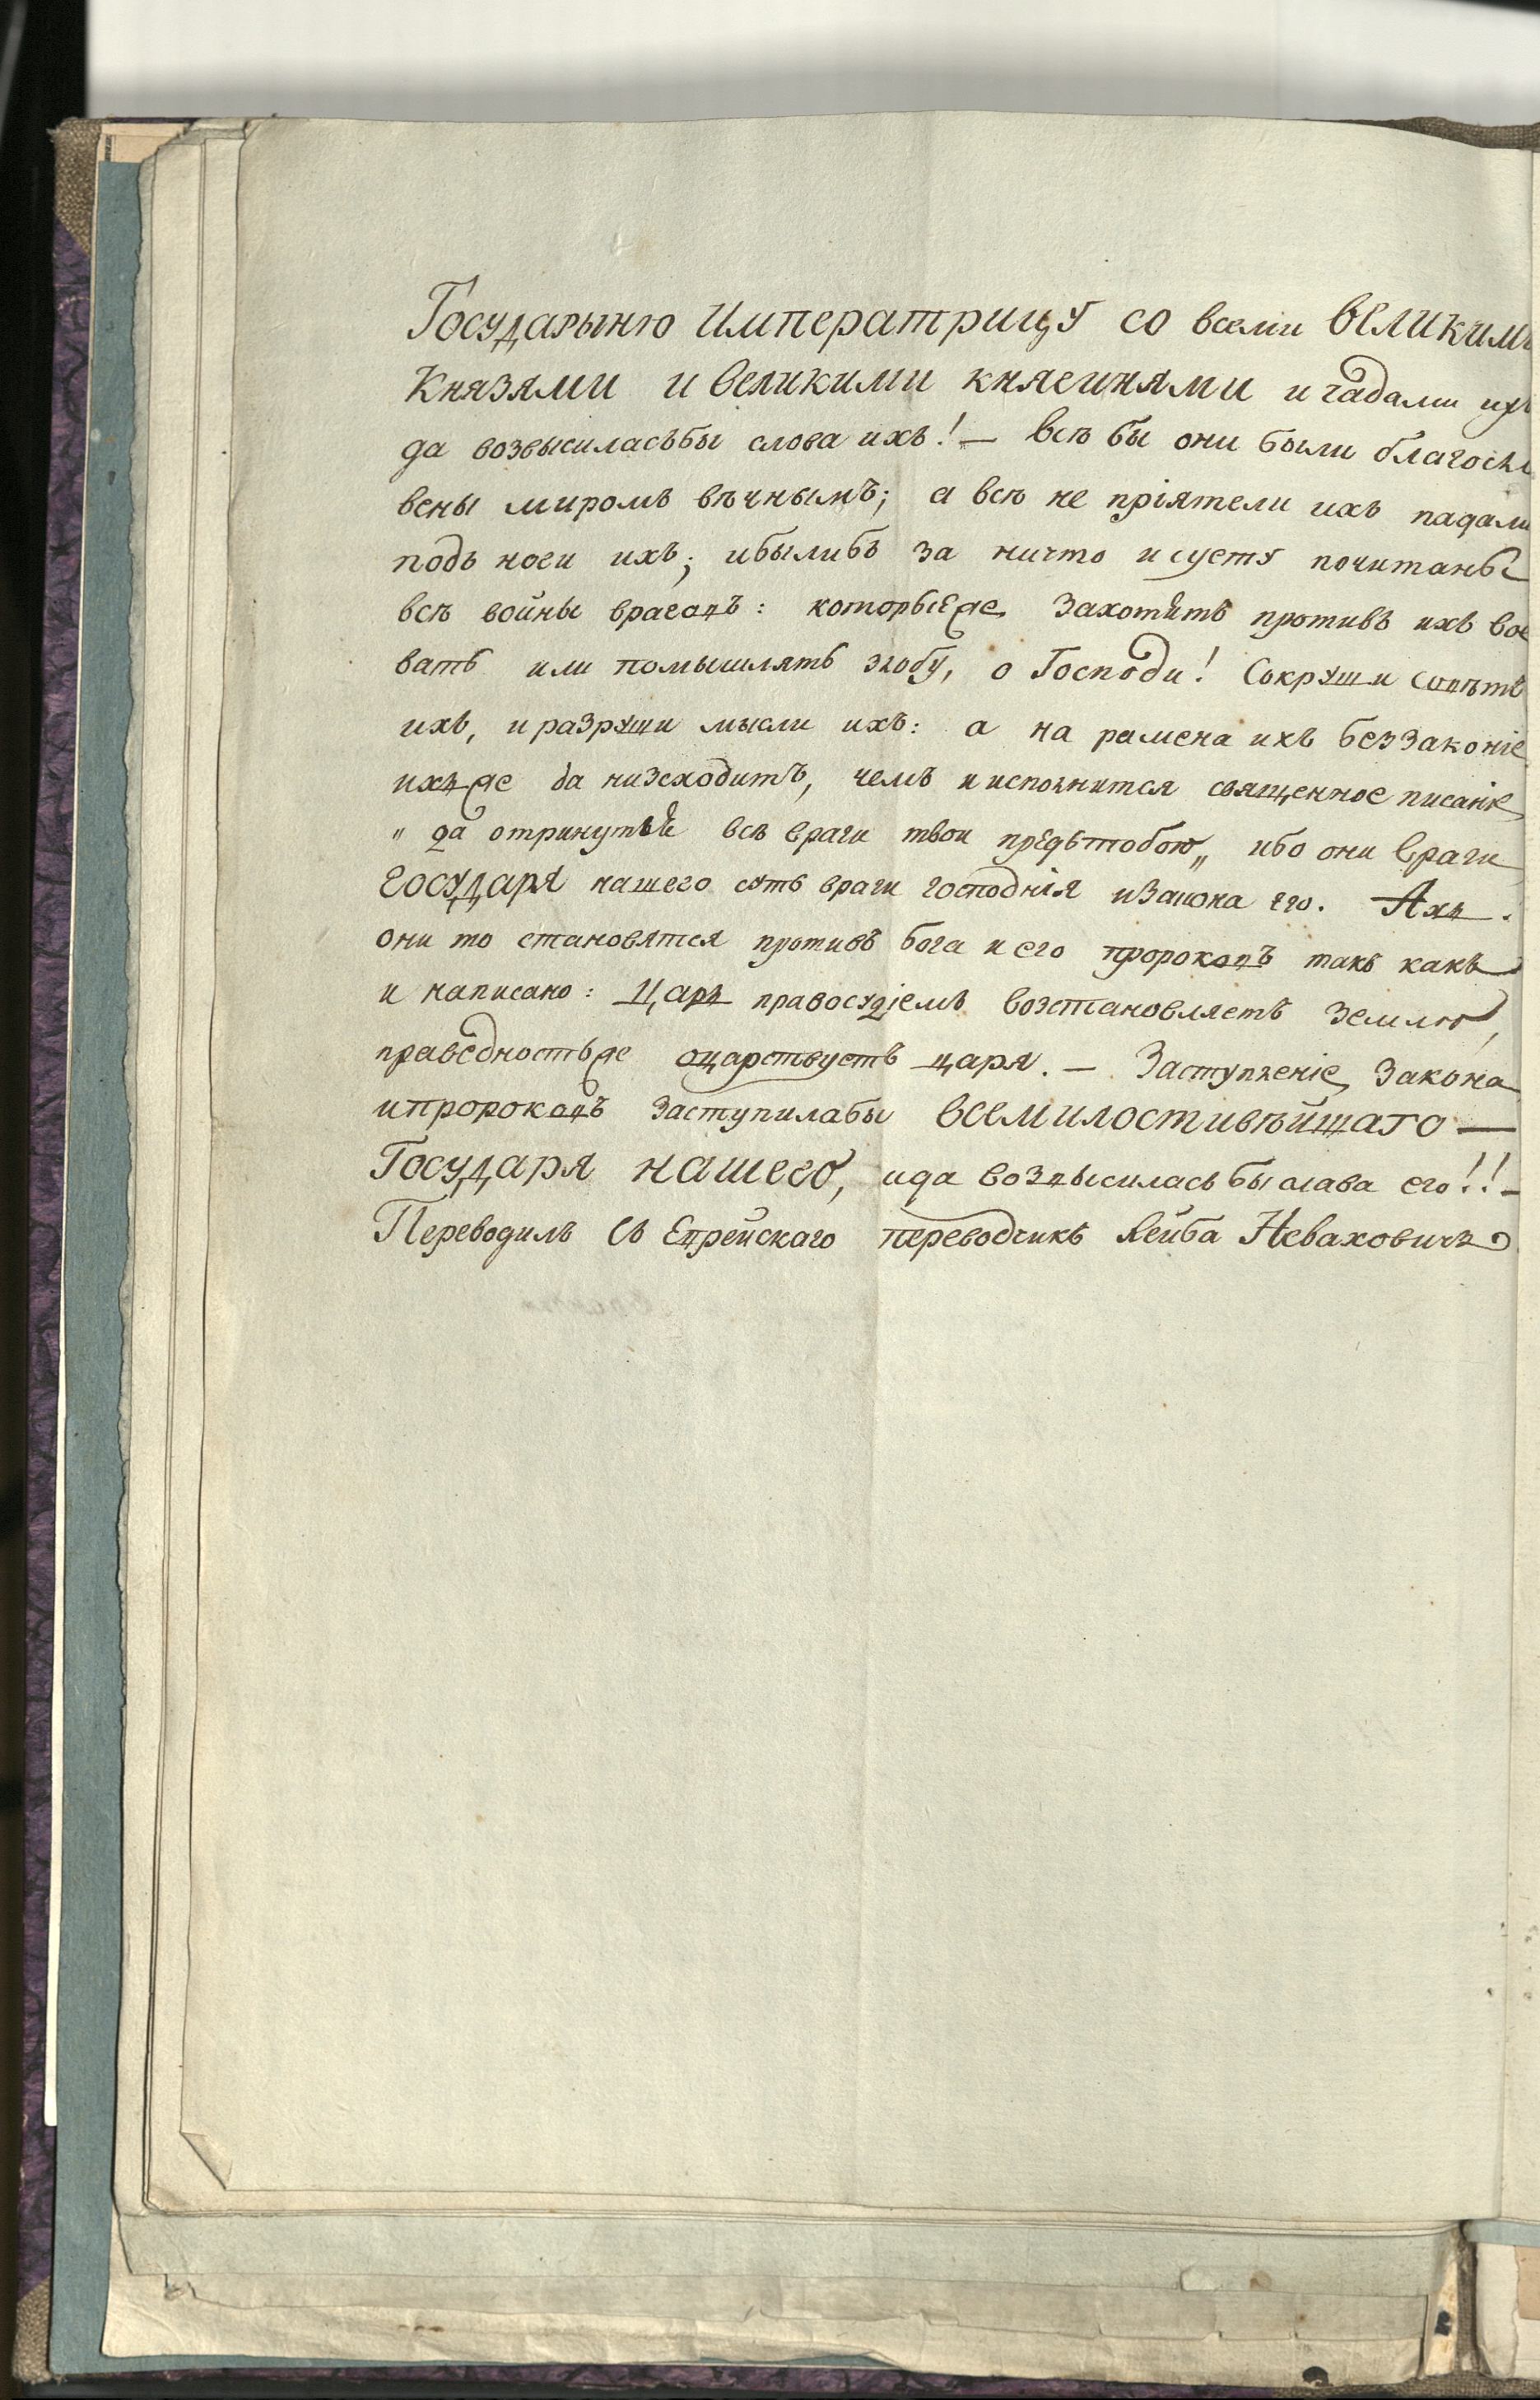 Государыню Императрицу со всеми великими
Князями и великими княгинями и чадами ихъ
да возвысиласьбы слова ихъ! — Всѣ бы они были благосл
вены миромъ вѣчнымъ; а всѣ не пріятели ихъ падали
подъ ноги ихъ; ибылибъ за ничто и суету почитаны
всѣ войны враговъ: которыеже захотѣтъ противъ ихъ вое
вать или помышлять злобу, о Господи! Сокруши совѣтъ
ихъ, и разруши мысли ихъ: а на рамена ихъ беззаконіе
ихъже да низходитъ, чемъ и исполнится священное писаніе
„ да отринуть всѣ враги твои предътобою„ ибо они враги
Государя нашего суть враги господнія изакона его. Ахъ.
они то становятся противъ бога и его пророковъ такъ какъ
и написано: Царь правосудіемъ возстановляетъ землю,
праведностьже оцарствуетъ царя. — Заступленіе закона
ипророковъ заступилабы всемилостивѣйшаго —
Государя нашего, ида возвысилась бы слава его!! —
Переводилъ съ Еврейскаго переводчикъ Лейба Невахович